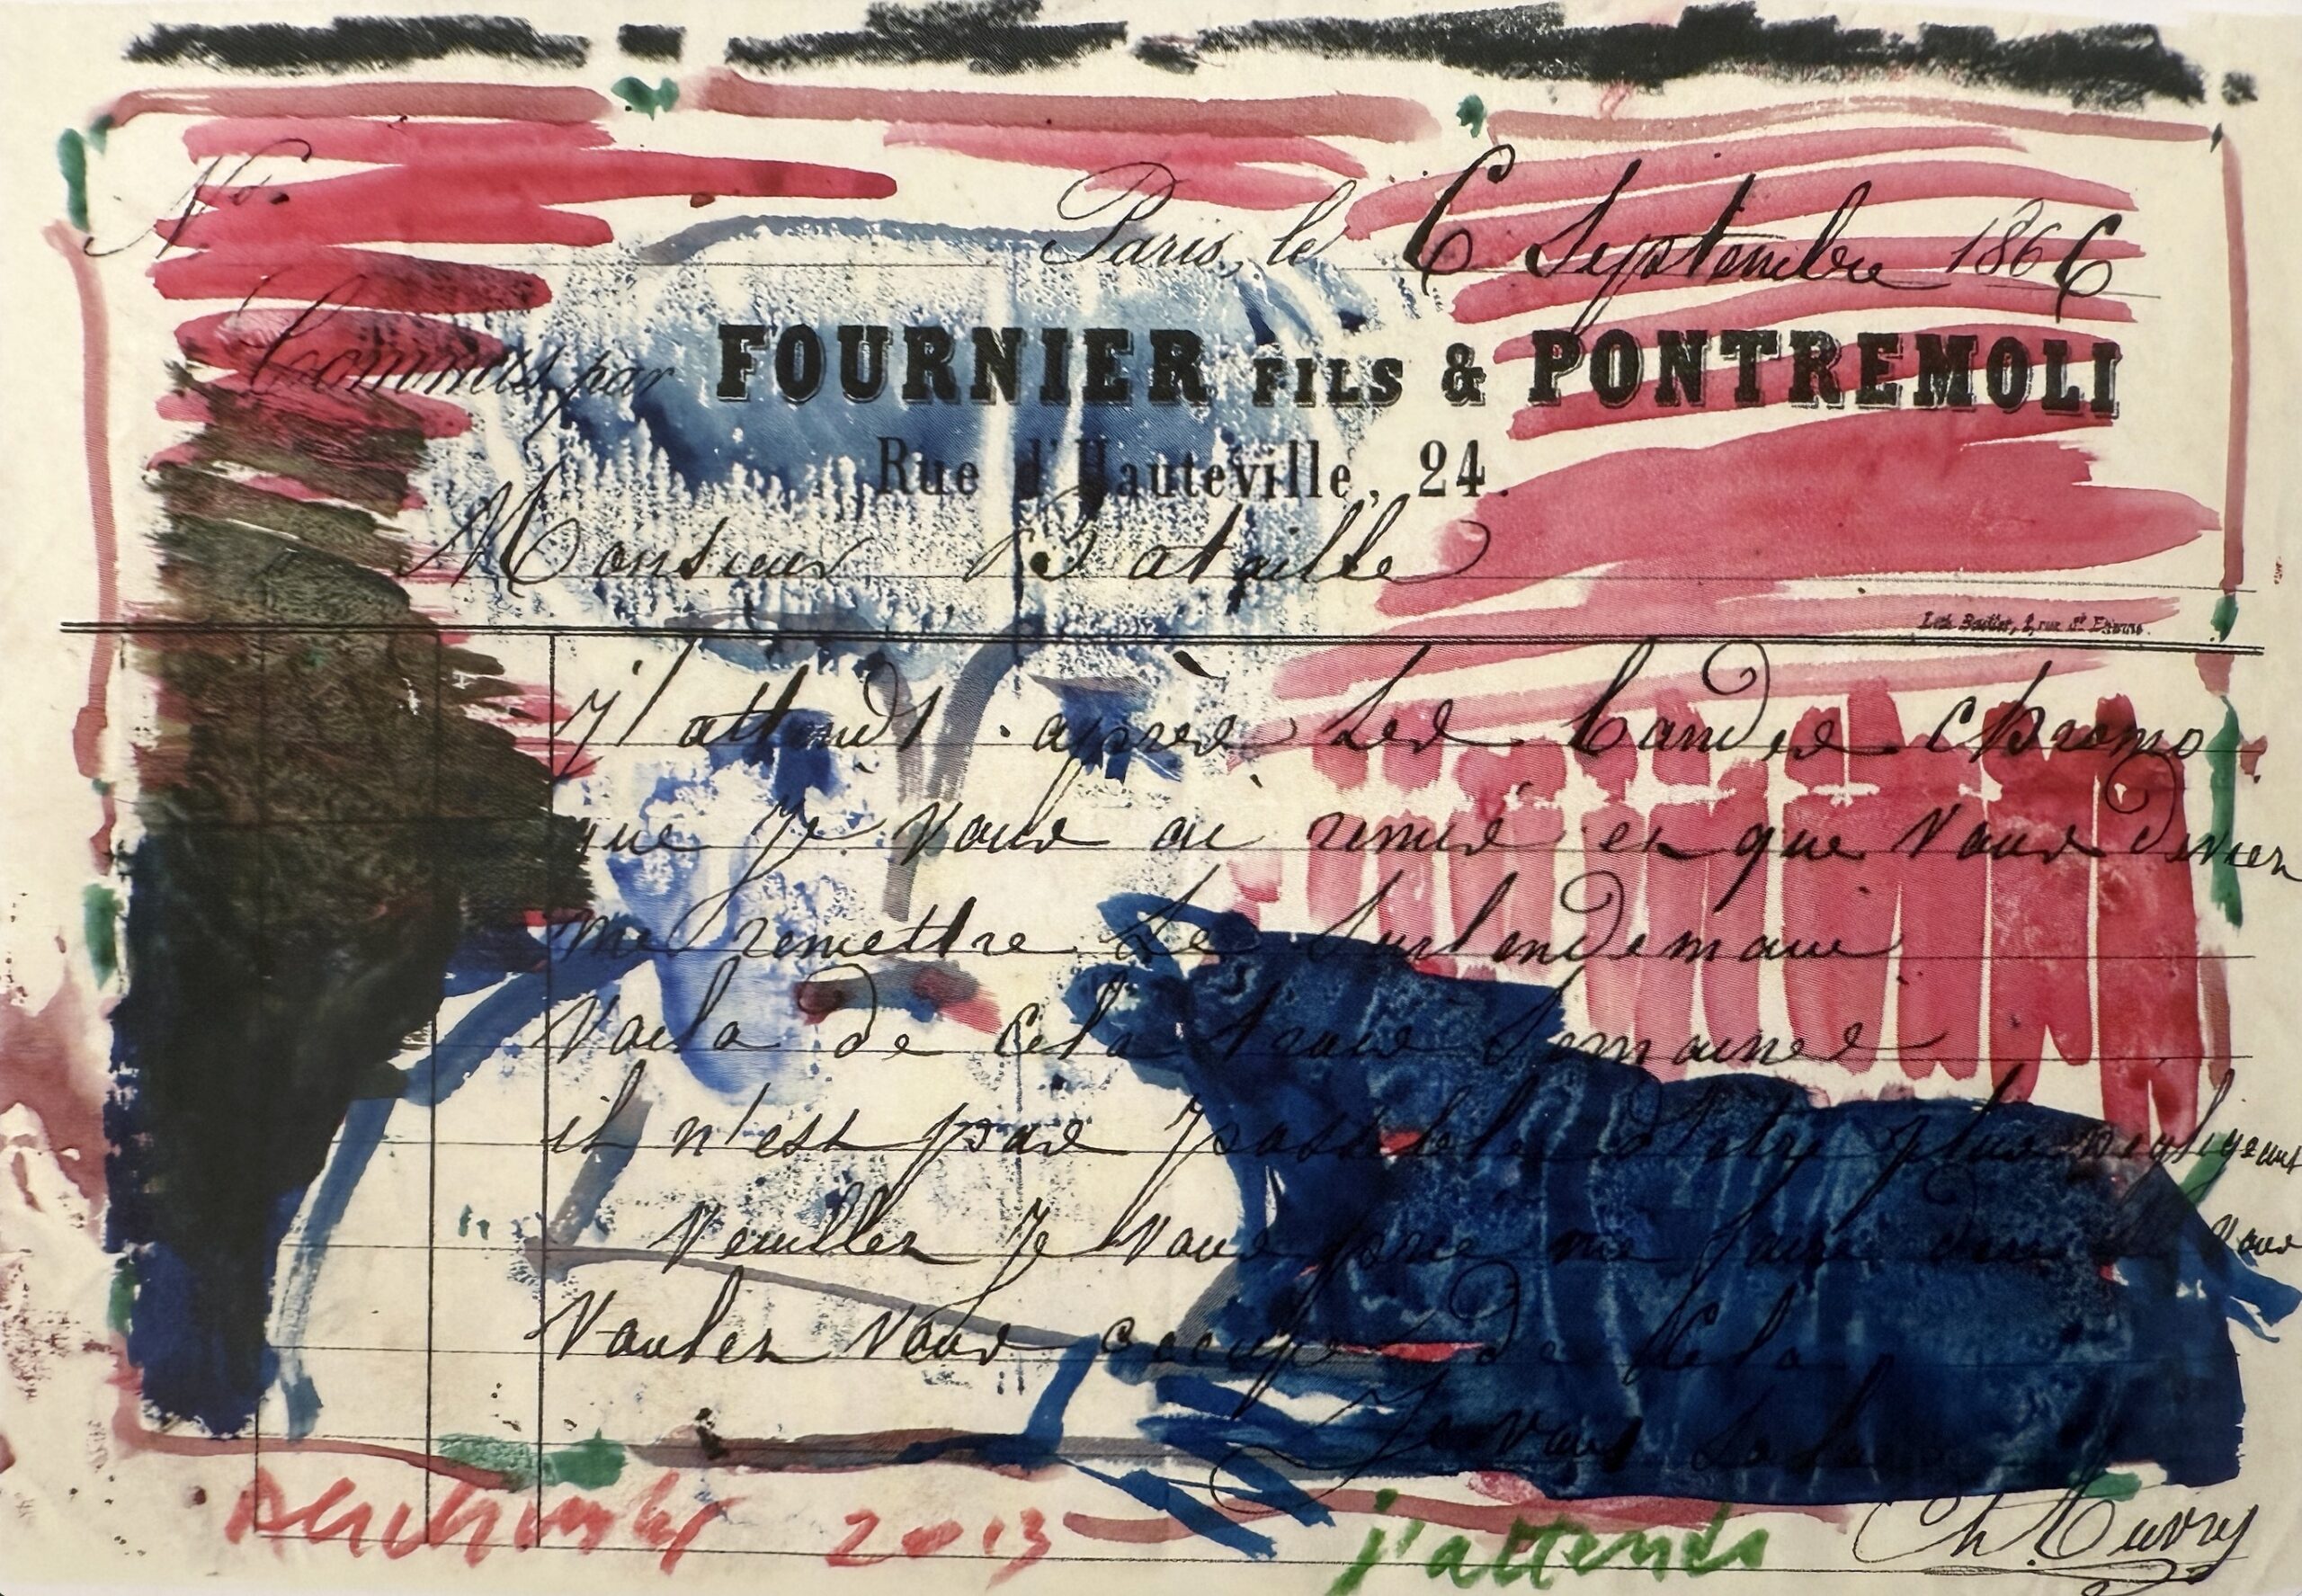 No.
Paris, le 6 Septembre 1866
Commis par FOURNIER FILS & PONTREMOLI
Rue d'Hauteville, 24.
Monsieur Bataille
Lith. Badier, 2, rue St Etienne.
j'attends après les bandes chromo
que je vous ai remis et que vous deviez
me remettre le surlendemain
voila de cela trois semaines
il n'est pas possible d'être plus négligeant
veuillez je vous prie me faire si vous
voulez vous occuper de cela
Je vous salue
Ch. Cuvry
2013
j'attends